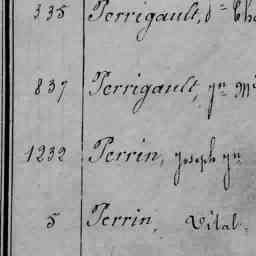 335 Perrigault, d=
837 Perrigault, Jn
1232 Perrin, Joseph Jn
5 Perrin, Vital.